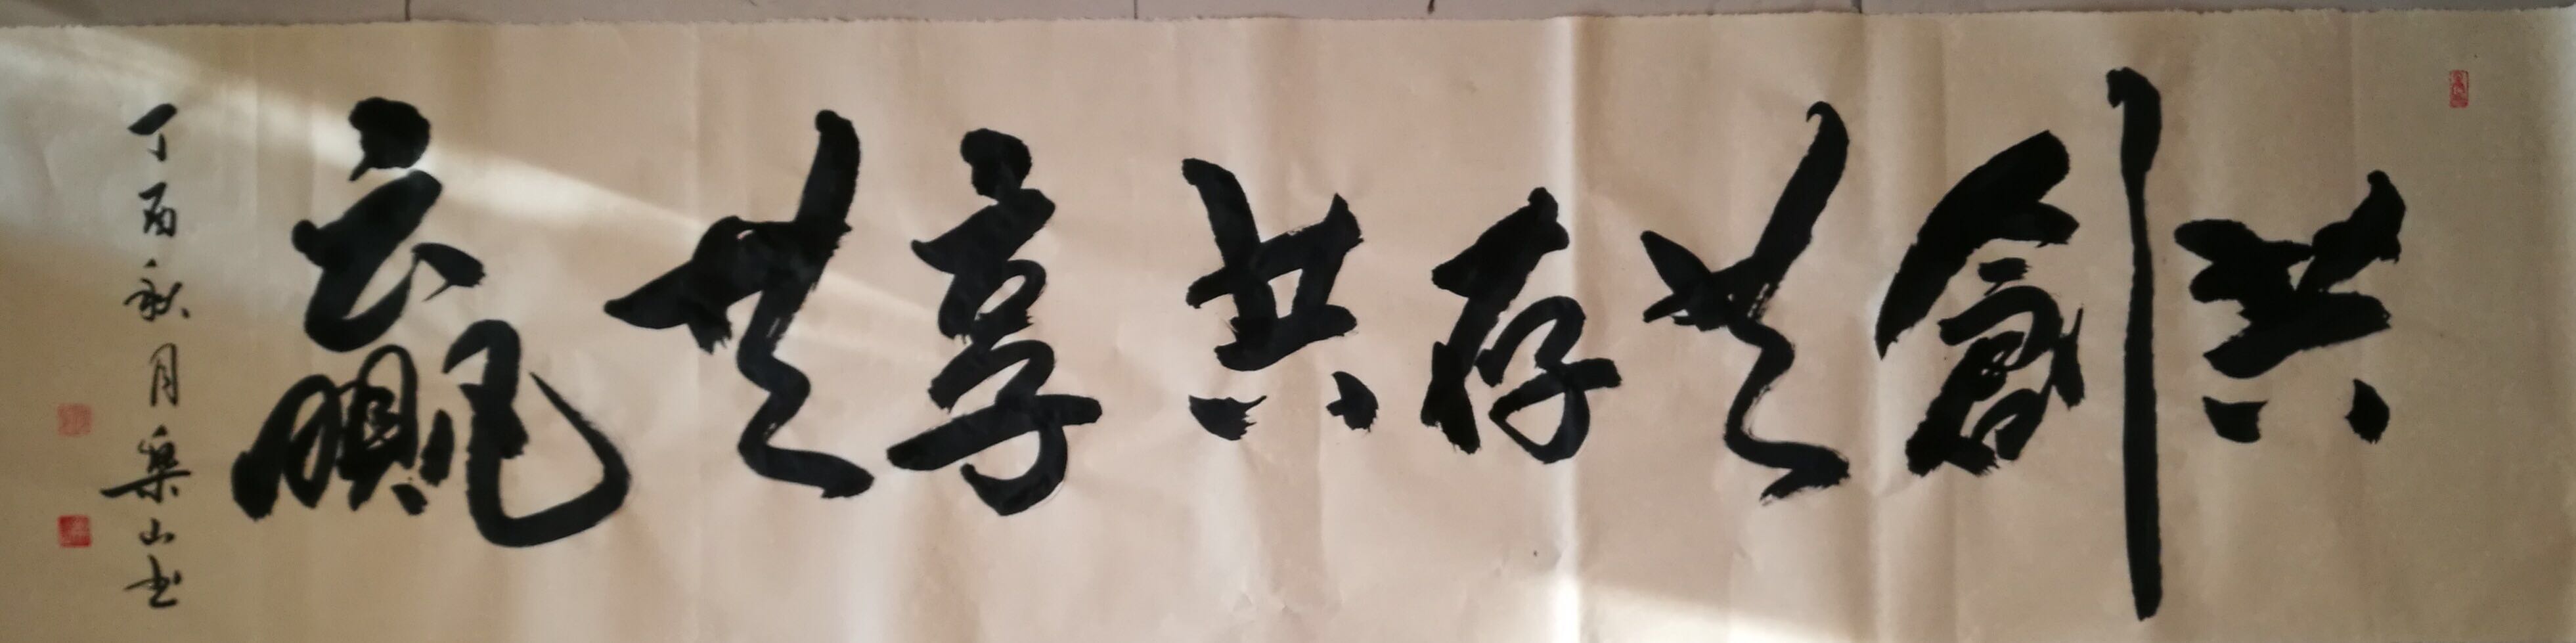 共創共存共享共贏
丁酉秋月樂山书